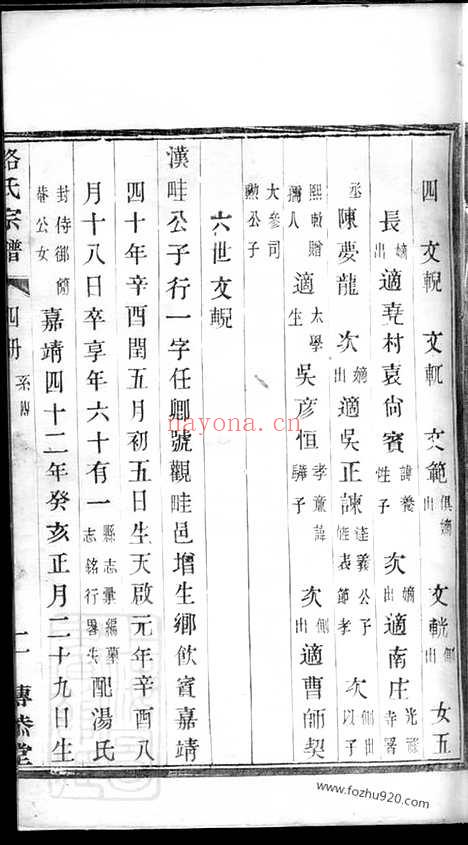 四 文輗 文軏 文範 俱嫡出 文輄 側出 女五
長 嫡出 適堯村袁尙賓 諱養性子 次 嫡出 適南庄 光祿寺署
丞 陳夢龍 次 嫡出 適吳正諫 逵義旌表 公子節孝 次 側出以子
熙敕贈孺人 適 太學生 吳彥恒 孝童諱驊子 次 側出 適曹師契
大參司勲公子
六世文輗
漢畦公子行一字任卿號觀畦邑增生鄉飲賓嘉靖
四十年辛酉閏五月初五日生天啟元年辛酉八
月十八日卒享年六十有一 縣志彙編藁志銘行畧失 配湯氏
封侍御簡菴公女 嘉靖四十二年癸亥正月二十九日生
氏宗譜 四册 系圖 二 傳恭堂
nayona.cn
www.fozhu920.com